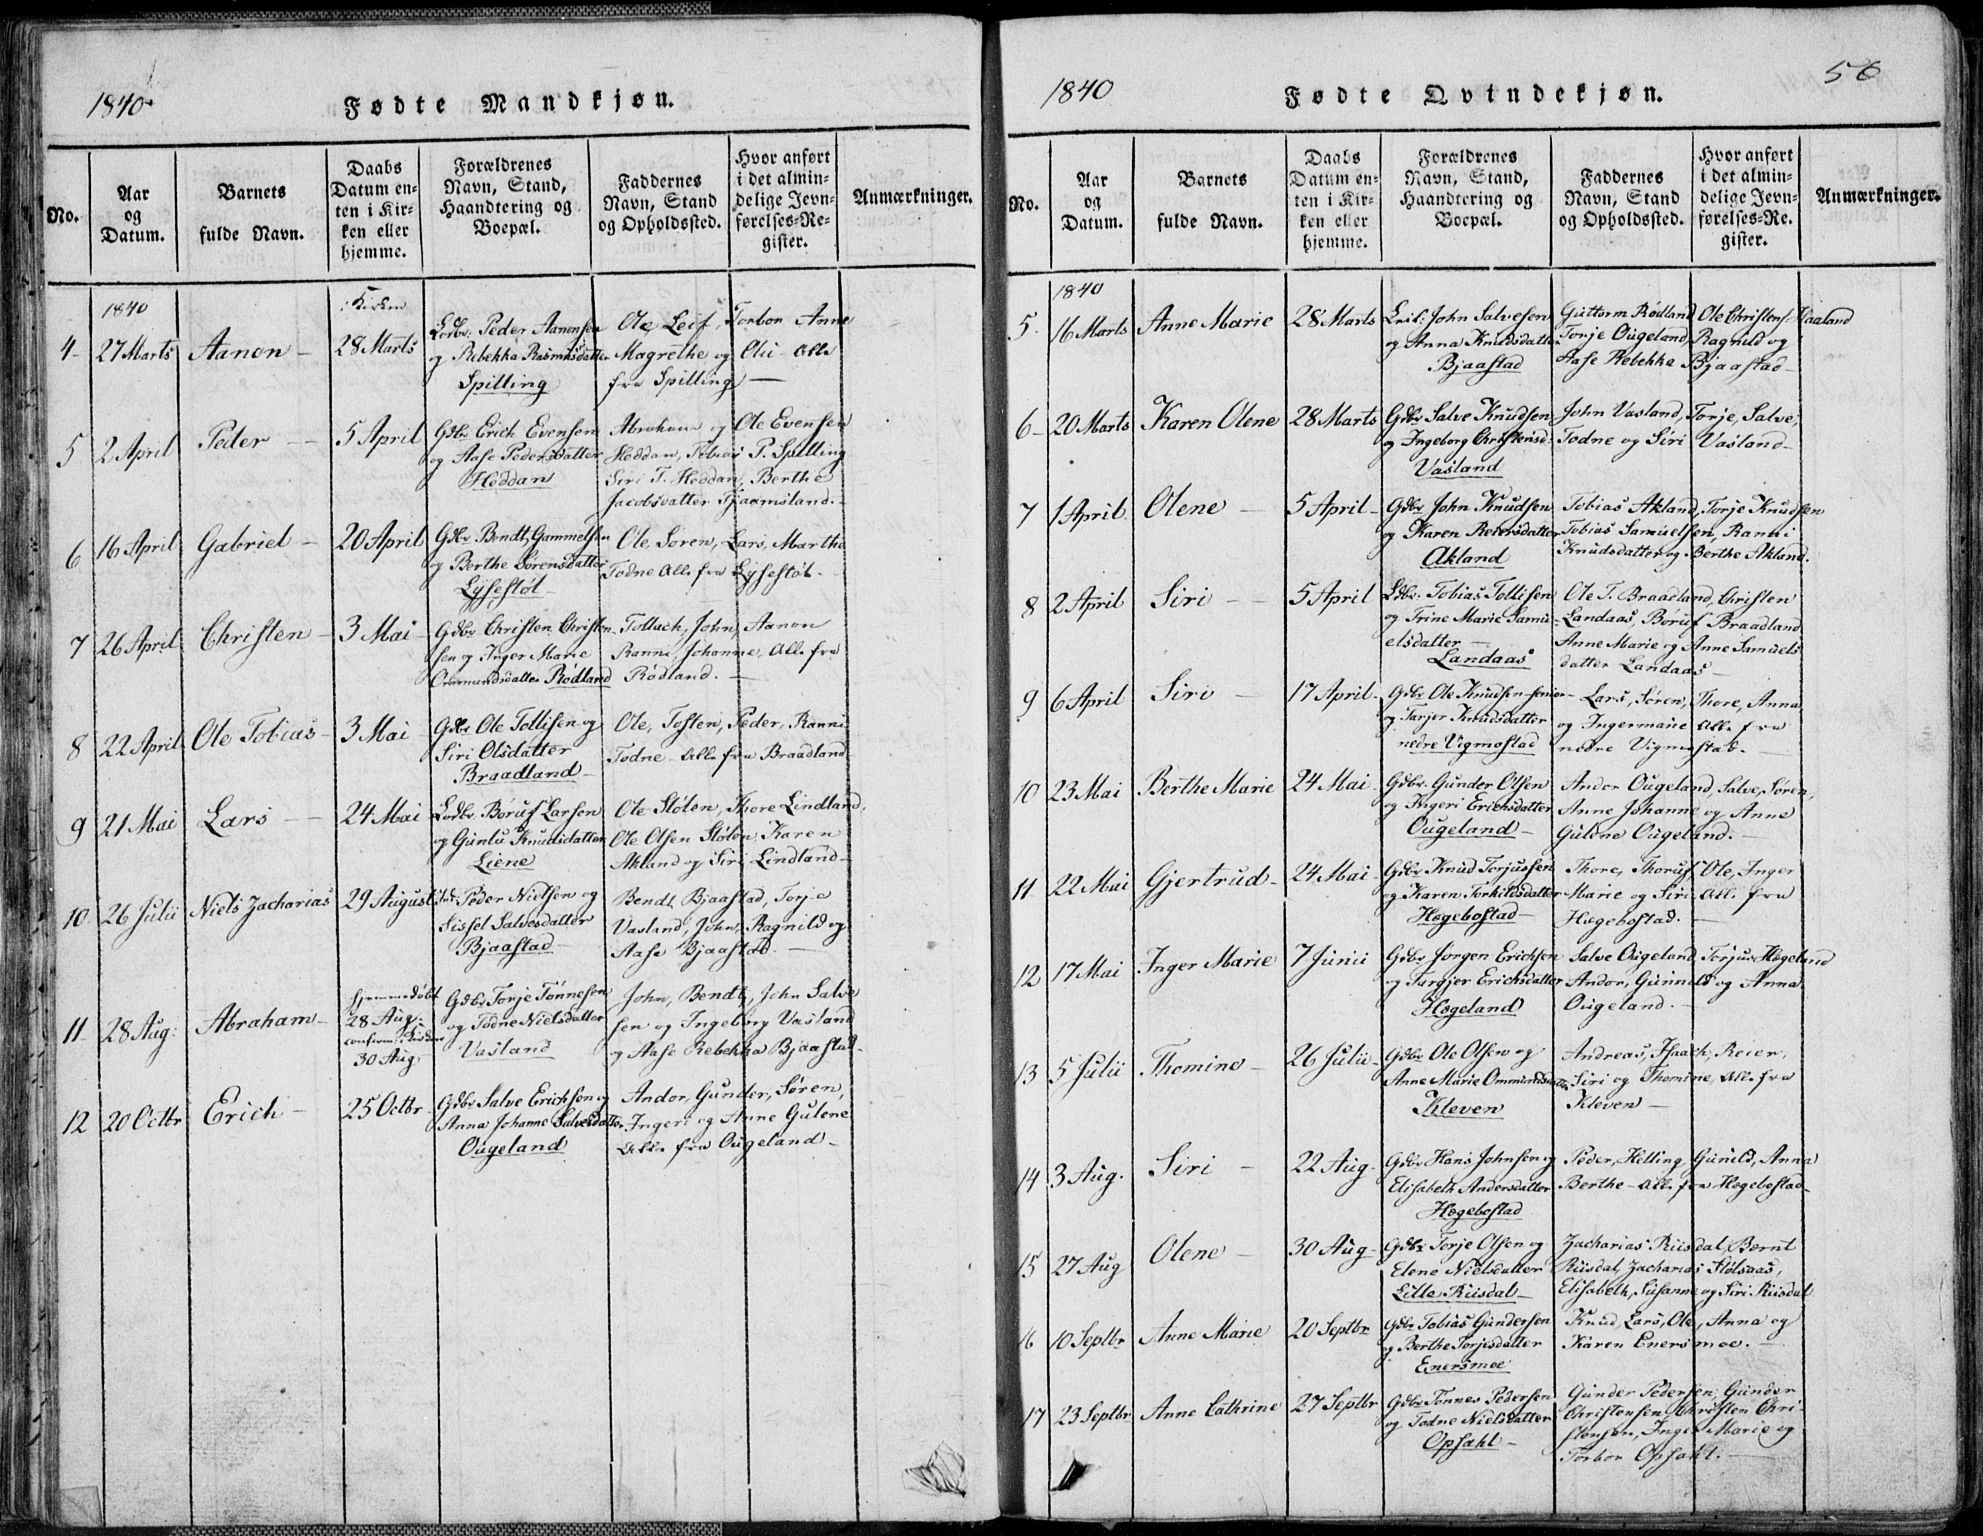 1840
Fødte Mandkjøn.
No.
Aar
og
Datum.
Barnets
fulde Navn.
Daabs
Datum en-
ten i Kir-
ken eller
hjemme.
Forældrenes
Navn, Stand,
Haandtering og
Boepæl.
Faddernes
Navn, Stand
og Opholdssted.
Hvor anført
i det almin-
delige Jevn-
førelses-Re-
gister.
Anmærkninger.
1840
Kirken
4 27 Marts Aanon 28 Marts
Peder Aanonsen
og Rebekka Rasmusdatter
Spilling
Ole, Leif, Torbor Anne
Magrethe og Oli Alle
fra Spilling
5 2 April Peder 5 April
Gdbr Erich Evensen
og Aase Pedersdatter
Heddan
Abraham og Ole Evensen
Heddan, Tobias P. Spilling
Siri T. Heddan, Berthe
Jacobsdatter Tjaamsland.
6 16 April Gabriel 20 April
Gdbr Bendt Gammelsen
og Berthe Sørensdatter
Lysestøl
Ole, Søren, Lars, Marthe
Todne Alle fra Lysestøl
7 26 April Christen 3 Mai
Gdbr Christen Christen-
sen og Inger Marie
Ommundsdatter Rødland
Tollach, John, Aanon
Ranni, Johanne, Alle fra
Rødland.
8 22 April Ole Tobias 3 Mai
Gdbr Ole Tollisen og
Siri Olsdatter
Braadland
Ole, Tosten, Peder, Ranni
Todne Alle fra Braadland
9 21 Mai Lars 24 Mai
Børuf Larsen
og Gunlu Knudsdatter
Liene
Ole Stølen, Thore Lindland,
Ole Olsen Stølen Karen
Akland og Siri Lindland
10 26 Julii Niels Zacharias 29 August
Peder Nielsen og
Sissel Salvesdatter
Bjaastad
Bendt Bjaastad, Torje
Vasland, John, Ragnild og
Aase Bjaastad.
11 28 Aug: Abraham
hjemmedøbt
28 Aug:
30 Aug
Gdbr Torje Tønnesen
og Todne Nielsdatter
Vasland
John, Bendt, John Salve
sen og Ingeborg Vasland
og Aase Rebekka Bjaastad
12 20 Octbr Erich 25 Octbr
Gdbr Salve Erichsen og
Anna Johanne Salvesdatter
Ougeland
Andor, Gunder, Søren,
Ingeri og Anne Gulene
Alle fra Ougeland
1840
56
Fødte Qvindekjøn.
No.
Aar
og
Datum.
Barnets
fulde Navn.
Daabs
Datum en-
ten i Kir-
ken eller
hjemme.
Forældrenes
Navn, Stand,
Haandtering og
Boepæl.
Faddernes
Navn, Stand
og Opholdssted.
Hvor anført
i det almin-
delige Jevn-
førelses-Re-
gister.
Anmærkninger.
1840
5 16 Marts Anne Marie 28 Marts
John Salvesen
og Anna Knudsdatter
Bjaastad
Guttorm Rødland Ole Christens: Vaaland
Torje Ougeland, Ragnild og
Aase Rebekka Bjaastad
6 20 Marts Karen Olene 28 Marts
Gdbr Salve Knudsen
og Ingeborg Christensd:
Vasland
John Vasland, Torje, Salve,
Todne og Siri Vasland
7 1 April Olene 5 April
Gdbr John Knudsen
og Karen Reiersdatter
Akland
Tobias Akland, Torje Knudsen
Tobias Samuelsen, Ranni
Knudsdatter og Berthe Akland.
8 2 April Siri 5 April
Tobias Tollisen
og Trine Marie Samu-
elsdatter
Landaas
Ole T. Braadland, Christen
Landaas, Børuf Braadland
Anne Marie og Anne Samuels
datter Landaas
9 6 April Siri 17 April
Gdbr Ole Knudsen senior
og Tarjer Knudsdatter
nedre Vigmostad
Lars, Søren, Thore, Anna
og Ingermarie Alle fra
nedre Vigmostad.
10 23 Mai Berthe Marie 24 Mai
Gdbr. Gunder Olsen
og Ingeri Erichsdatter
Ougeland
Andor Ougeland, Salve, Søren,
Anne Johanne og Anne
Gulene Ougeland.
11 22 Mai Gjertrud 24 Mai
Gdbr Knud Torjussen
og Karen Torkildsdatter
Hægebostad
Thore, Thoruf, Ole, Inger
Marie og Siri Alle fra
Hægebostad.
12 17 Mai Inger Marie 7 Junii
Gdbr Jørgen Erichsen
og Tarjer Erichsdatter
Høgeland
Salve Ougeland, Torjus Høgeland
Andor, Gunnild og Anna
Ougeland.
13 5 Julii Thomine 26 Julii
Gdbr Ole Olsen og
Anne Marie Ommundsdatter
Kleven
Andreas, Isaach, Reier,
Siri og Thomine, Alle fra
Kleven
14 3 Aug. Siri 22 Aug
Gdbr Hans Johnsen og
Elisabeth Andersdatter
Hægebostad
Peder, Helling, Gunild, Anna
Berthe Alle fra Hægebostad
15 27 Aug Olene 30 Aug
Gdbr Torje Olsen og
Elene Nielsdatter
Lille Riisdal
Zacharias Riisdal, Bernt
Riisdal, Zacharias Stølsaas,
Elisabeth, Susanne og Siri Riisdal
16 10 Septbr Anne Marie 20 Septbr
Gdbr Tobias Gundersen
og Berthe Torjesdatter
Enersmoe
Knud, Lars, Ole, Anna og
Karen Enersmoe.
17 23 Septbr Anne Cathrine 27 Septbr
Gdbr Tønnes Pedersen
og Todne Nielsdatter
Opsahl
Gunder Pedersen, Gunder
Christensen, Christen Chri-
stensen, Inger Marie og
Torbor Opsahl.